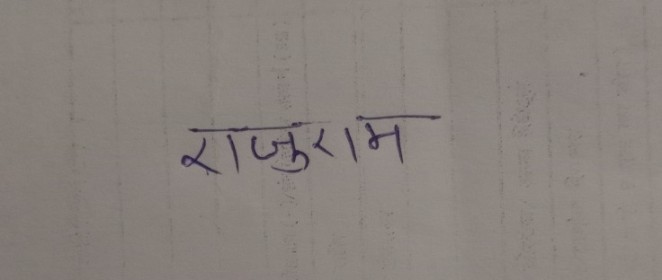 राजुराम